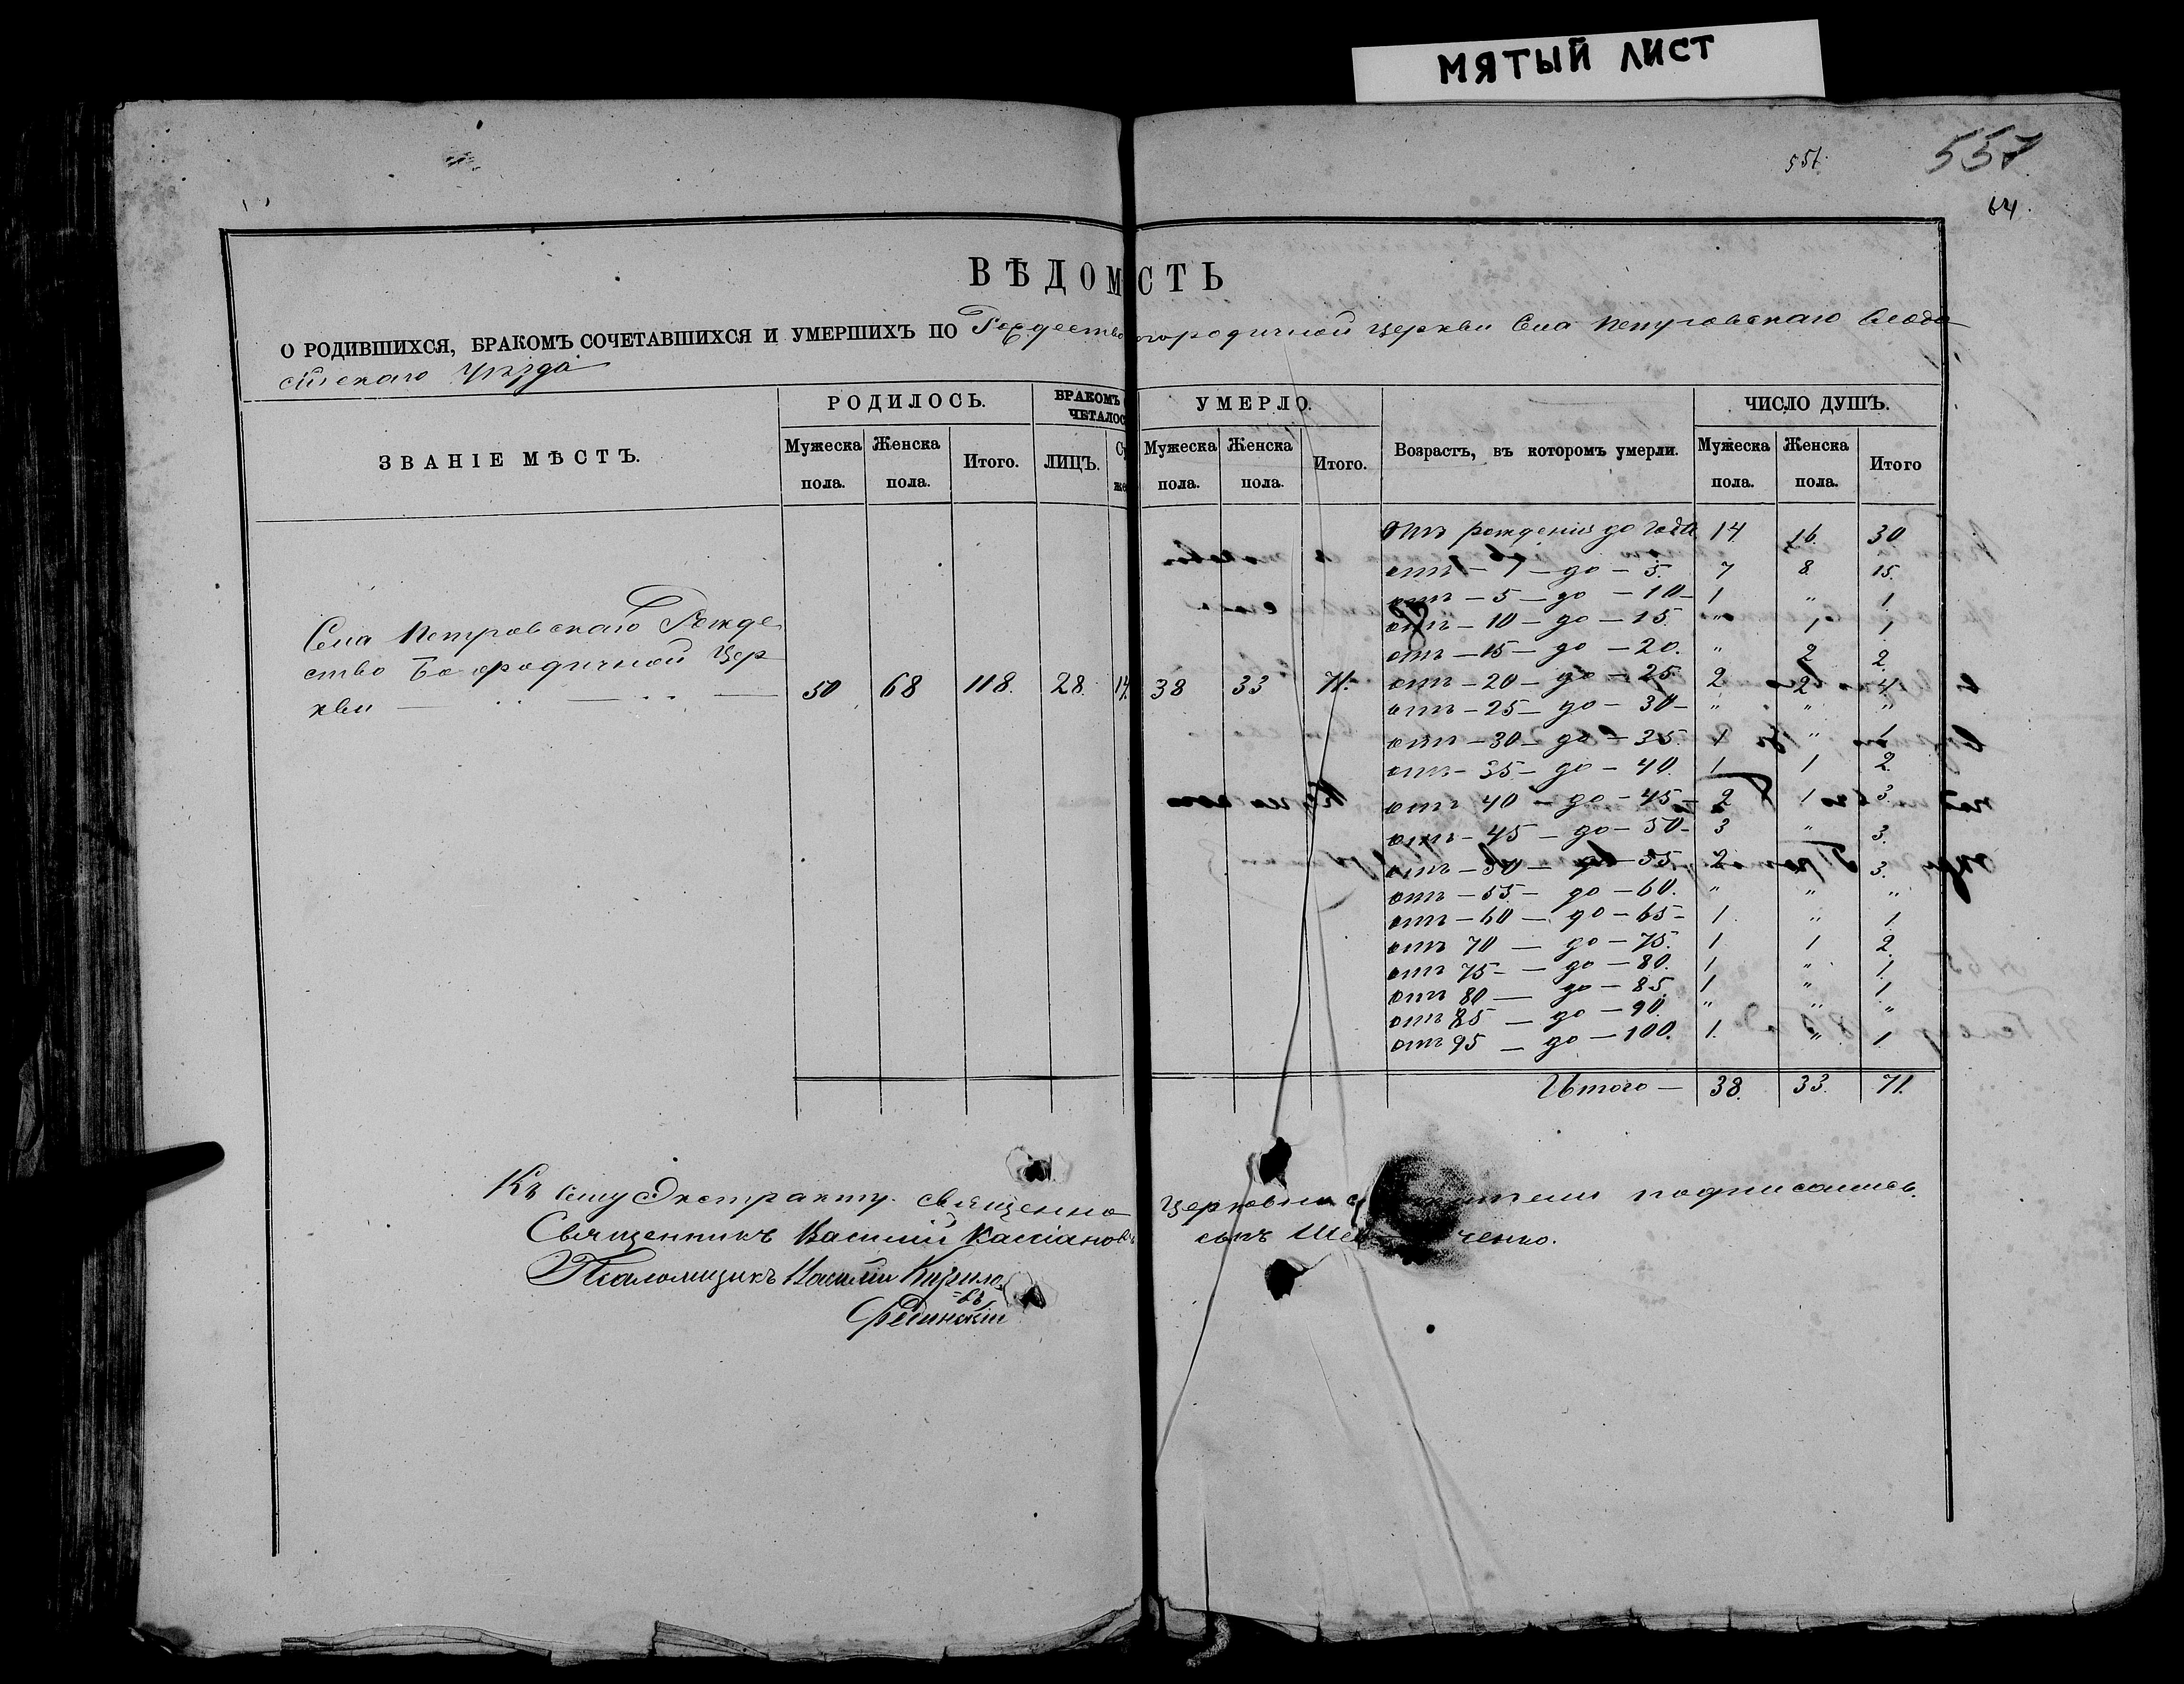 МЯТЫЙ ЛИСТ
557
64
ВѢДОМОСТЬ
О РОДИВШИХСЯ, БРАКОМЪ СОЧЕТАВШИХСЯ И УМЕРШИХЪ ПО Рождество городичной церкви Села Петровскаго
Уѣзда
ЗВАНІЕ МѢСТЪ.
РОДИЛОСЬ.
Мужеска пола.
Женска пола.
Итого.
БРАКОМЪ
ЧЕТАЛОС
ЛИЦЪ.
УМЕРЛО.
Мужеска пола.
Женска пола.
Итого.
Возрастъ, въ которомъ умерли.
ЧИСЛО ДУШЪ.
Мужеска пола.
Женска пола.
Итого
Села Петровскаго Рожде
ство Богородичной Цер
кви
50 68 118. 28. 14 38 33 71.
Отъ рожденія до года 14 16. 30
отъ — 1 — до — 5. 7 8 15.
отъ — 5 — до — 10 — 1 " 1
отъ — 10 — до — 15. " 1 1
отъ — 15 — до — 20. " 2 2.
отъ — 20 — до — 25. 2 2 4.
отъ — 25 — до — 30 — " " "
отъ — 30 — до — 35. 1 " 1
отъ — 35 — до — 40. 1 1 2.
отъ 40 — до — 45 — 2 1 3.
отъ — 45 — до — 50 — 3 " 3.
отъ — 50 — до — 55. 2 1 3.
отъ — 55 — до — 60. " " "
отъ — 60 — до — 65 — 1 " 1
отъ 70 — до — 75. 1 1 2.
отъ 75 — до — 80. 1 " 1.
отъ 80 — до — 85. 1 " 1
отъ 85 — до — 90. " " "
отъ 95 — до — 100. 1. " 1
Итого — 38. 33. 71.
Къ сему Экстракту священно церковно подписались.
Священникъ Василій Кассіановъ сынъ ченко.
Псаломщикъ Василій Кирило
=въ